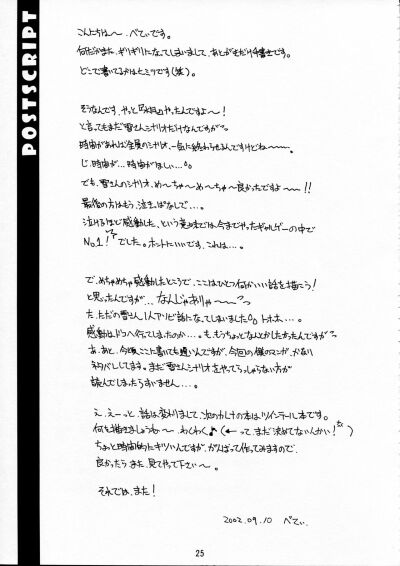 POSTSCRIPT
こんにちは〜 ぺてぃです。
何だかまた、ギリギリになってしまいまして、あとがきだけ手書きです。
どこで書いてるかはヒミツです(笑)。
そうなんです、やっと『水月』やったんですよ〜!
と言ってもまだ雪さんシナリオだけなんですが。
時間があれば全員のシナリオ、一気に終わらせるんですけどね〜。
じ、時間が… 時間がほしい…。
でも、雪さんのシナリオ、め〜ちゃ〜め〜ちゃ〜良かったですよ〜!!
最後の方はもう、泣きっぱなしで…。
泣けるほど感動した、という意味では、今までやったギャルゲーの中で
No.1!でした。ホントにいいです、これは…。
で、めちゃめちゃ感動したところで、ここはひとつ何かいい話を描こう!
と思ったんですが… なんじゃありゃ〜
た、ただの雪さん1人アソビ話になってしまいました。トホホ…。
感動はドコへ行ってしまったのか…。も、もうちょっとなんとかしたかったんですが
あ、あと、今頃ここに書いても遅いんですが、今回の僕のマンガ、かなり
ネタバレしてます。まだ雪さんシナリオをやってらっしゃらない方が
読んでしまったらすいません…。
え、えーっと、話は変わりまして、次のカレナの本はツインテール本です。
何を描きましょうね〜 わくわく♪(←って、まだ決めてないんかい!)
ちょっと時間的にキツいんですが、がんばって作ってみますので、
良かったらまた、見てやって下さい〜。
それでは、また!
2002.09.10 ぺてぃ
25